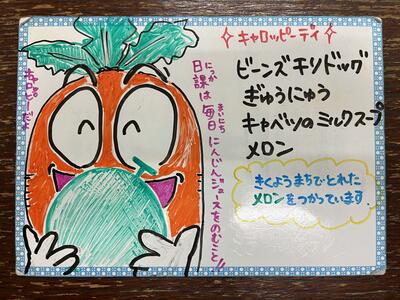 ☆キャロッピーデイ☆
ビーンズチリドッグ
ぎゅうにゅう
キャベツのミルクスープ
メロン
きくようまちでとれた
メロンをつかっています
日課は毎日にんじんジュースをのむこと!!
にっか
まいにち
キャロッピーだよ